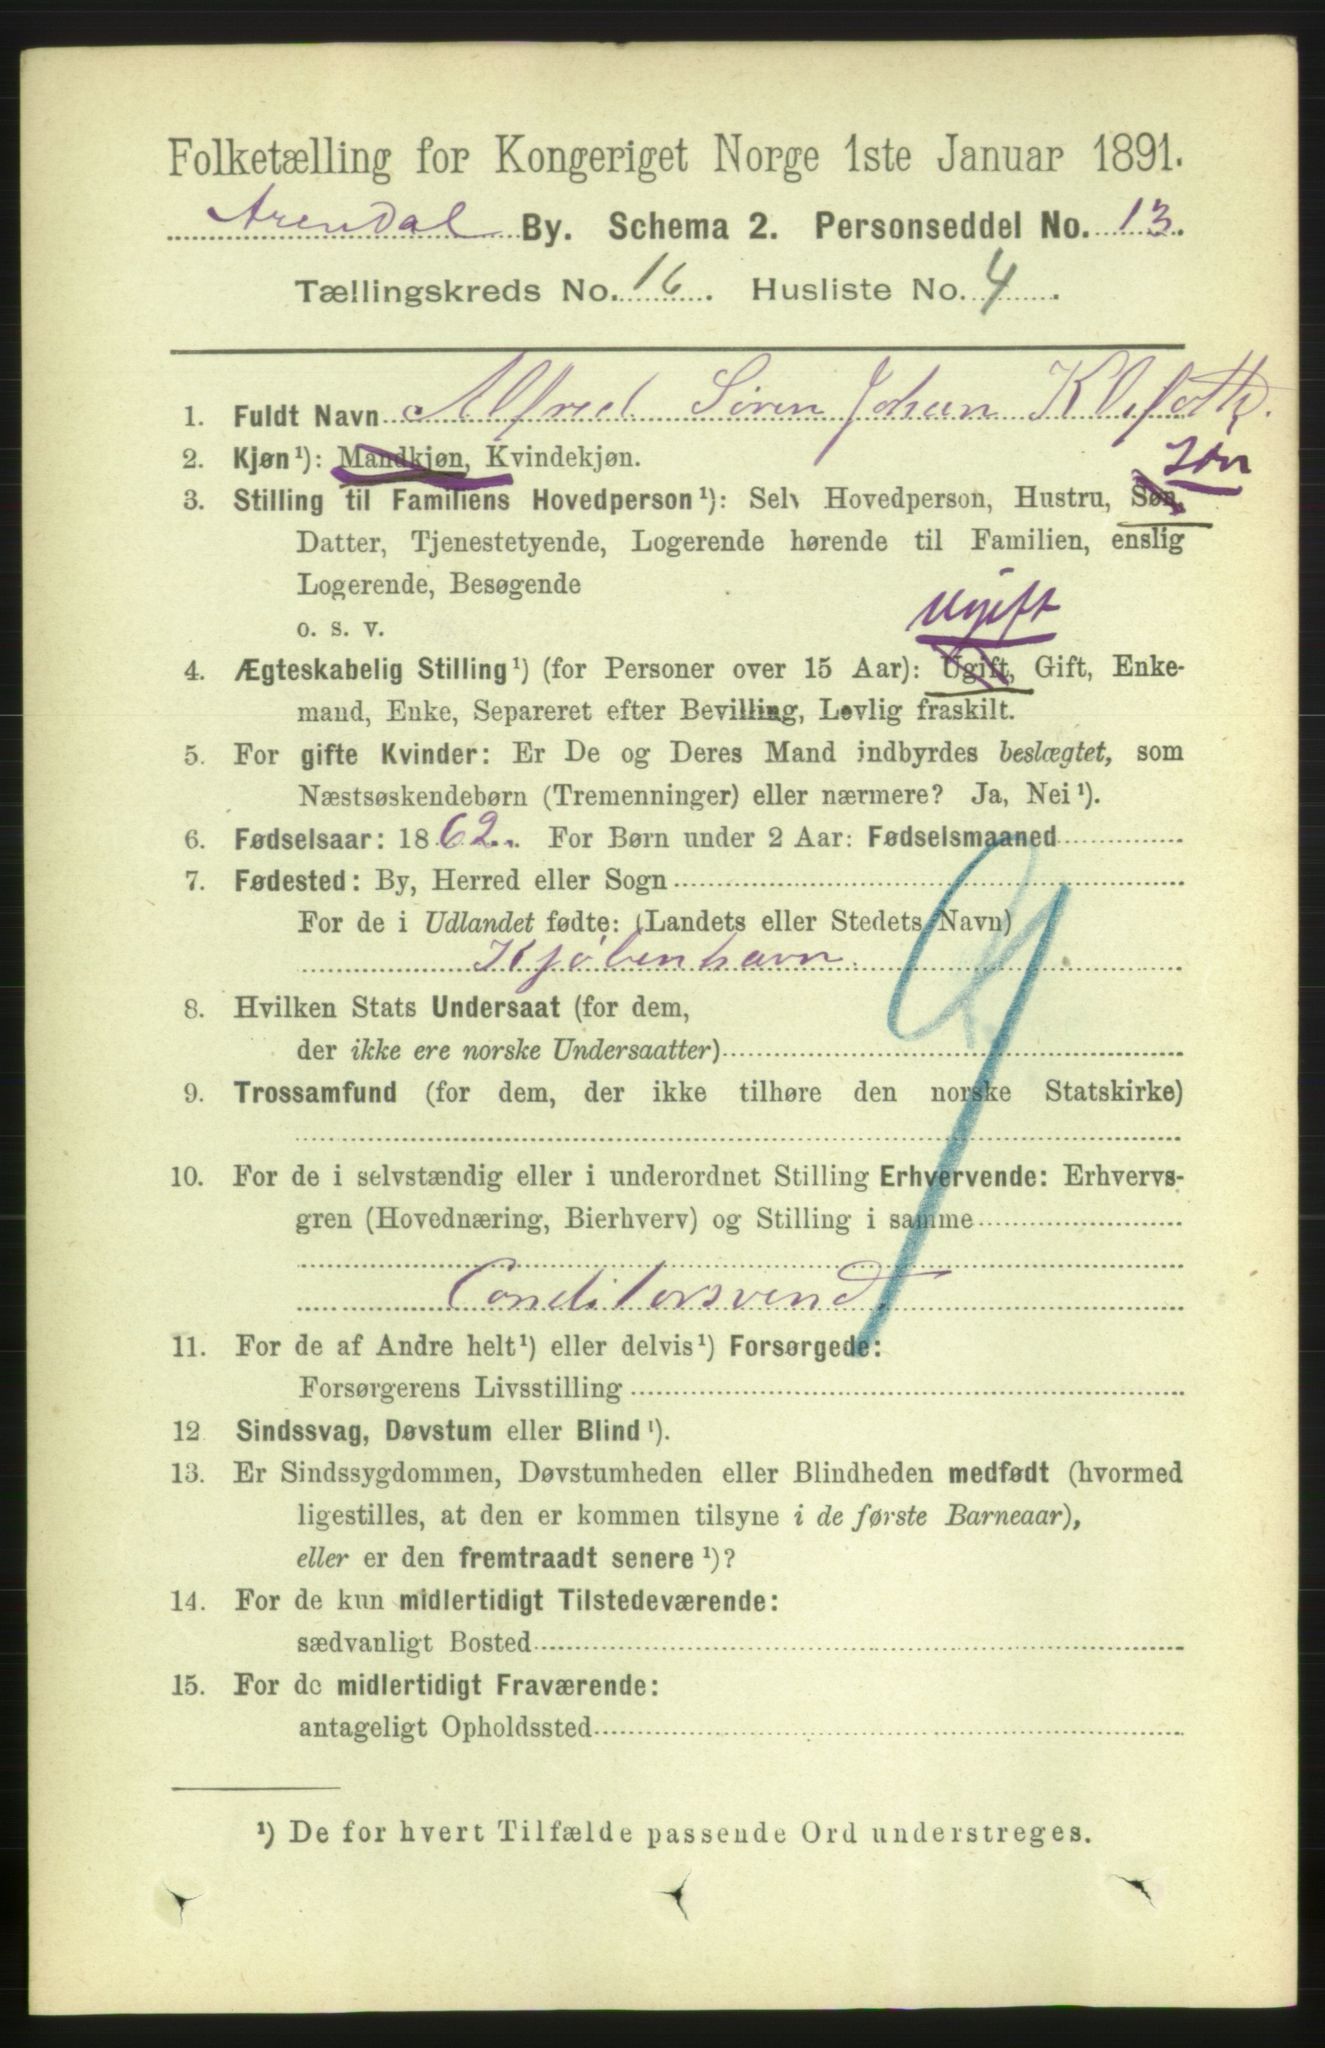 Folketælling for Kongeriget Norge 1ste Januar 1891.
Arendal By. Schema 2. Personseddel No. 13.
Tællingskreds No. 16. Husliste No. 4.
1. Fuldt Navn Alfred Sören Johan Klefoth.
2. Kjøn¹): Mandkjøn, Kvindekjøn.
Søn
3. Stilling til Familiens Hovedperson¹): Selv Hovedperson, Hustru, Søn,
Datter, Tjenestetyende, Logerende hørende til Familien, enslig
Logerende, Besøgende
o. s. v.
Ugift
4. Ægteskabelig Stilling¹) (for Personer over 15 Aar): Ugift, Gift, Enke-
mand, Enke, Separeret efter Bevilling, Lovlig fraskilt.
5. For gifte Kvinder: Er De og Deres Mand indbyrdes beslægtet, som
Næstsøskendebørn (Tremenninger) eller nærmere? Ja, Nei¹).
6. Fødselsaar: 1862. For Børn under 2 Aar: Fødselsmaaned
7. Fødested: By, Herred eller Sogn
For de i Udlandet fødte: (Landets eller Stedets Navn)
Kjöbenhavn.
8. Hvilken Stats Undersaat (for dem,
der ikke ere norske Undersaatter)
9. Trossamfund (for dem, der ikke tilhøre den norske Statskirke)
10. For de i selvstændig eller i underordnet Stilling Erhvervende: Erhvervs-
gren (Hovednæring, Bierhverv) og Stilling i samme
Conditorsvend.
11. For de af Andre helt¹) eller delvis¹) Forsørgede:
Forsørgerens Livsstilling
12 Sindssvag, Døvstum eller Blind¹).
13. Er Sindssygdommen, Døvstumheden eller Blindheden medfødt (hvormed
ligestilles, at den er kommen tilsyne i de første Barneaar),
eller er den fremtraadt senere¹)?
14. For de kun midlertidigt Tilstedeværende:
sædvanligt Bosted
15. For de midlertidigt Fraværende:
antageligt Opholdssted
¹) De for hvert Tilfælde passende Ord understreges.